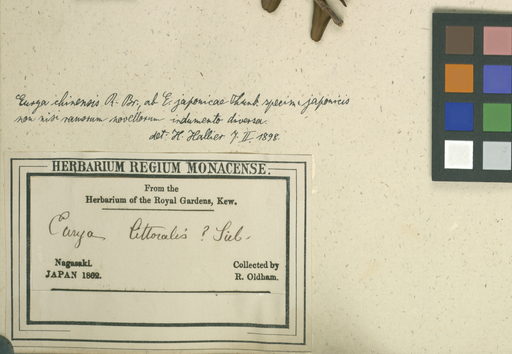 Eurya chinensis R. Br., ab E. japonicae Thunb. specim. japonicis
non nisi ramorum novellorum indumento diversa.
det. H. Hallier 7. II. 1898.
HERBARIUM REGIUM MONACENSE.
From the
Herbarium of the Royal Gardens, Kew.
Eurya littoralis ? Sieb.
Nagasaki.
JAPAN 1862.
Collected by
R. Oldham.